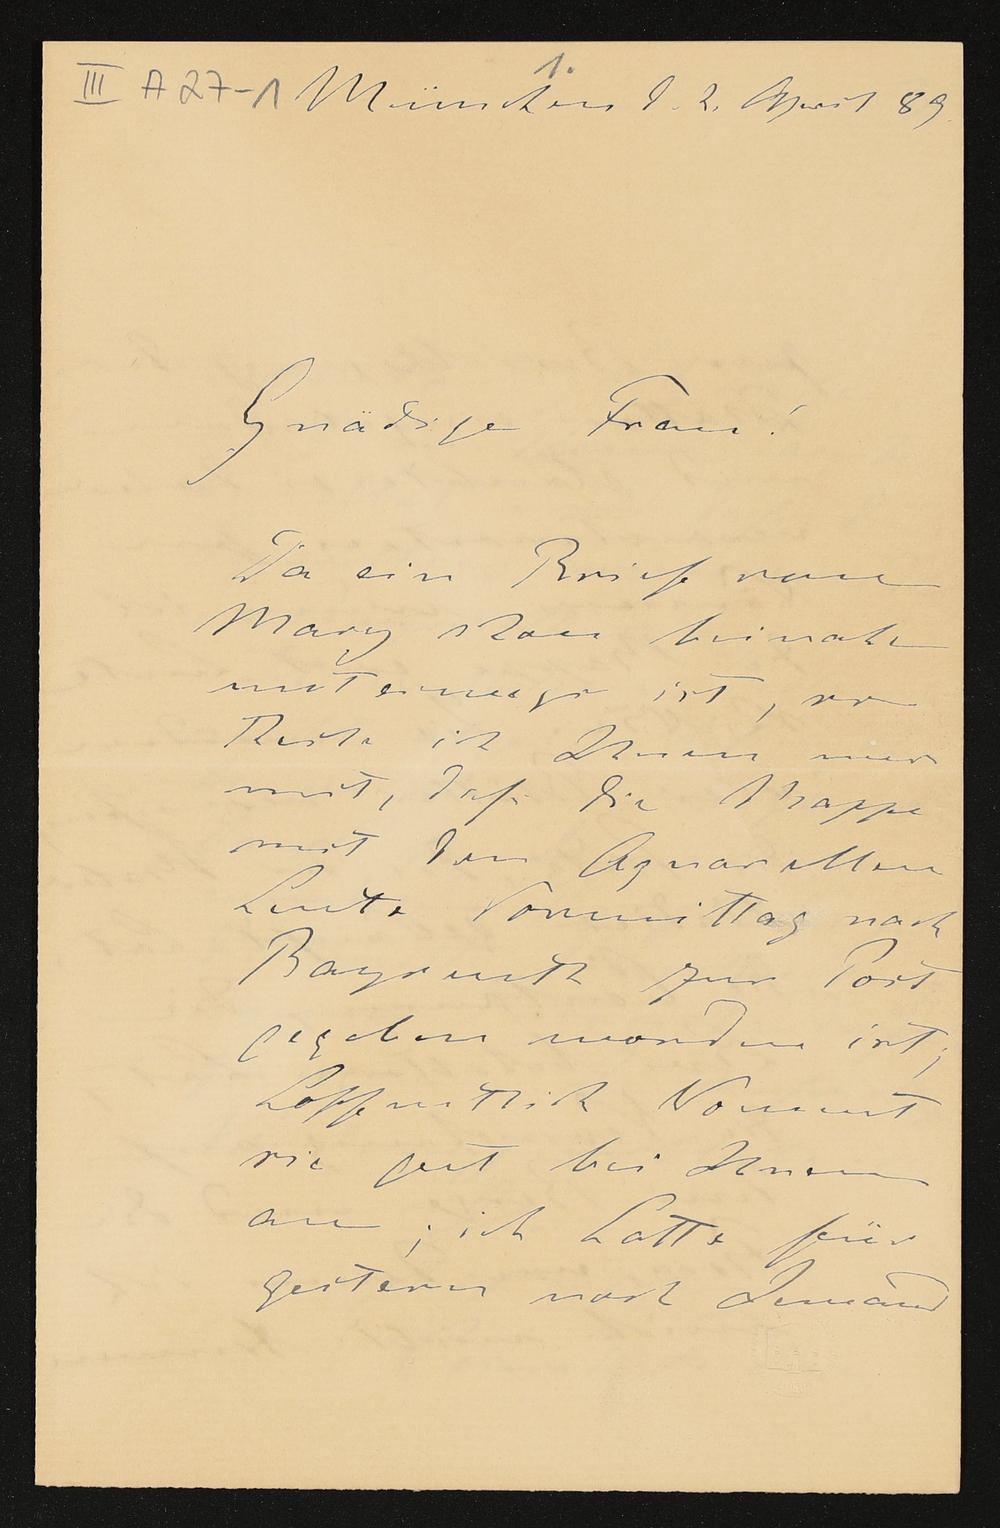 III A 27-1 München d. 2. April 89.
1.
Gnädige Frau!
Da ein Brief von
Mary schon beinahe
unterwegs ist, so
theile ich Ihnen nur
mit, daß die Mappe
mit den Aquarellen
heute Vormittag nach
Bayreuth zur Post
gegeben worden ist;
hoffentlich kommt
sie gut bei Ihnen
an; ich hatte für
gestern noch Jemand